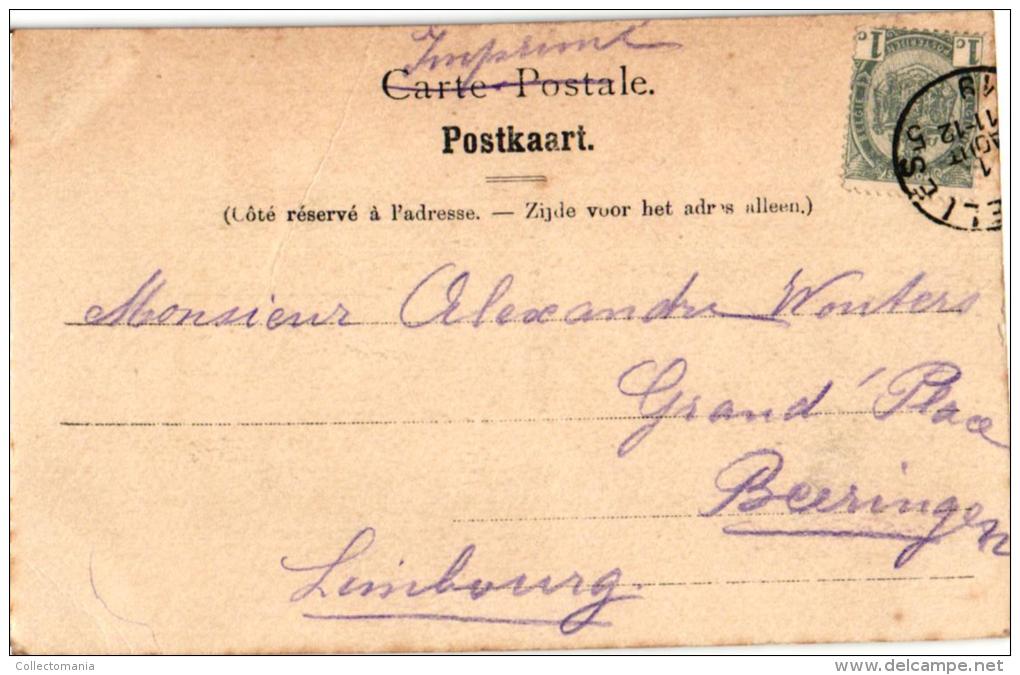 Imprimé
Carte Postale.
Postkaart.
(Côté réservé à l'adresse. — Zijde voor het adres alleen.)
1c 1c
1
AOUT
11-12
Monsieur Alexandre Wouters
Grand' Place
Beeringen
Limbourg
Collectomania
www.delcampe.net